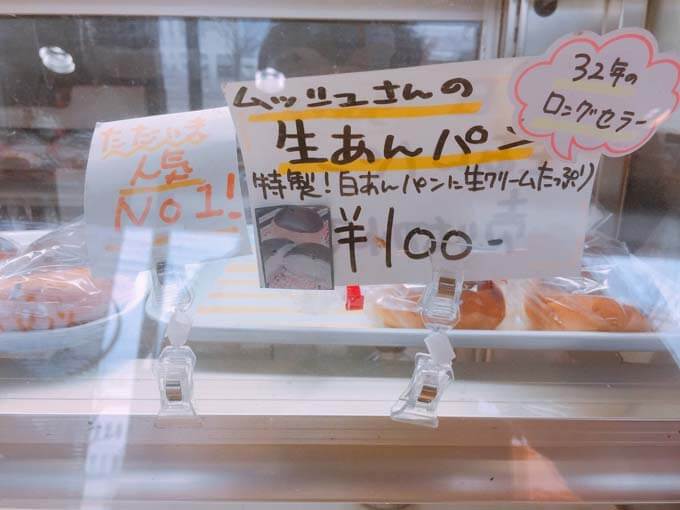 ただいま
人気
NO1!
ムッシュさんの
生あんパン
特製!白あんパンに生クリームたっぷり
¥100-
32年の
ロングセラー